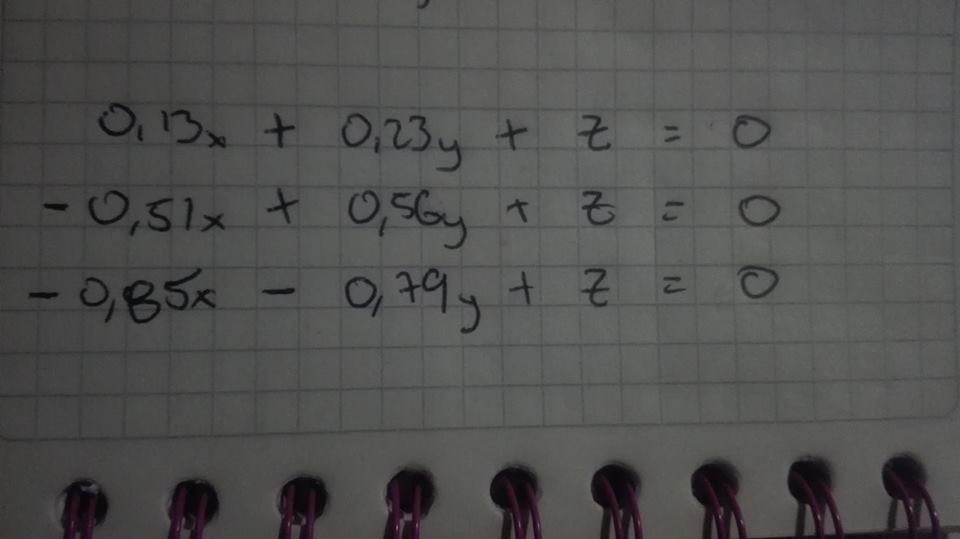 0,13x + 0,23y + z = 0
- 0,51x + 0,56y + z = 0
- 0,85x - 0,79y + z = 0